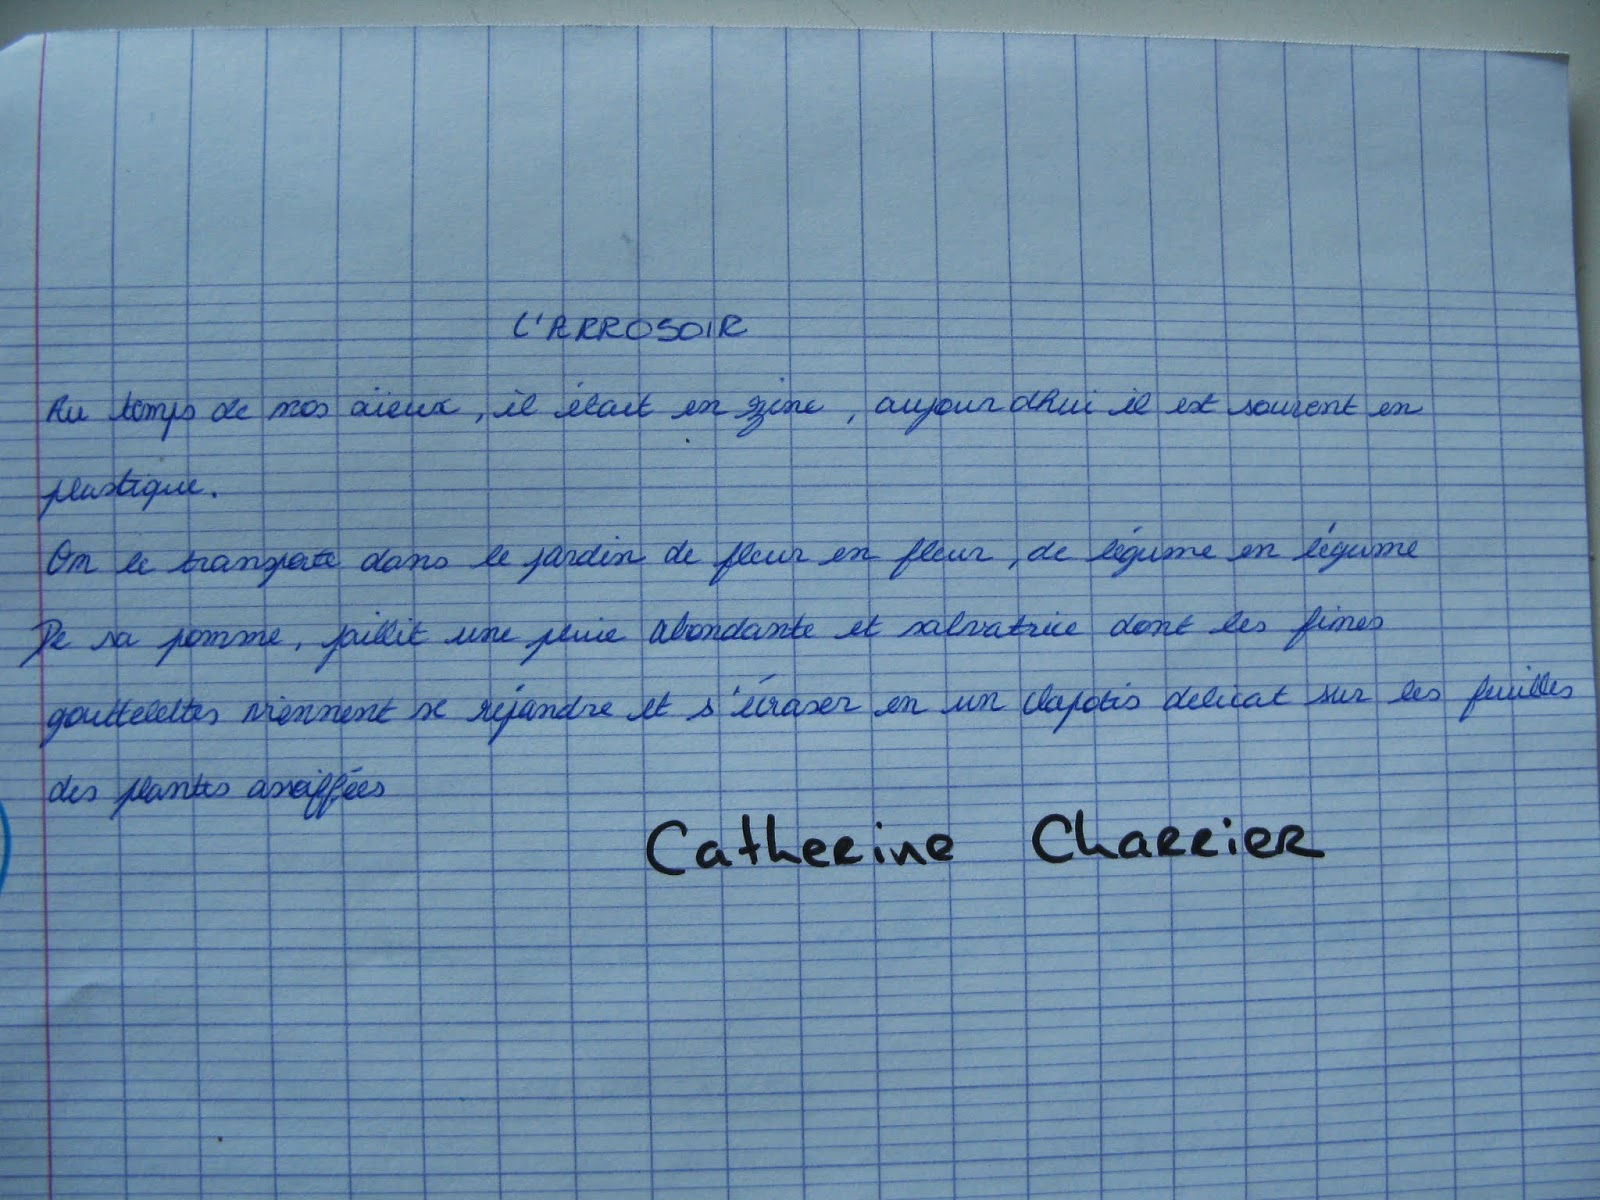 L'ARROSOIR
Au temps de nos aïeux, il était en zinc, aujourd'hui il est souvent en
plastique.
On le transporte dans le jardin de fleur en fleur, de légume en légume
De sa pomme, jaillit une pluie abondante et salvatrice dont les fines
gouttelettes viennent se répandre et s'écraser en un clapotis delicat sur les feuilles
des plantes assoiffées
Catherine Charrier